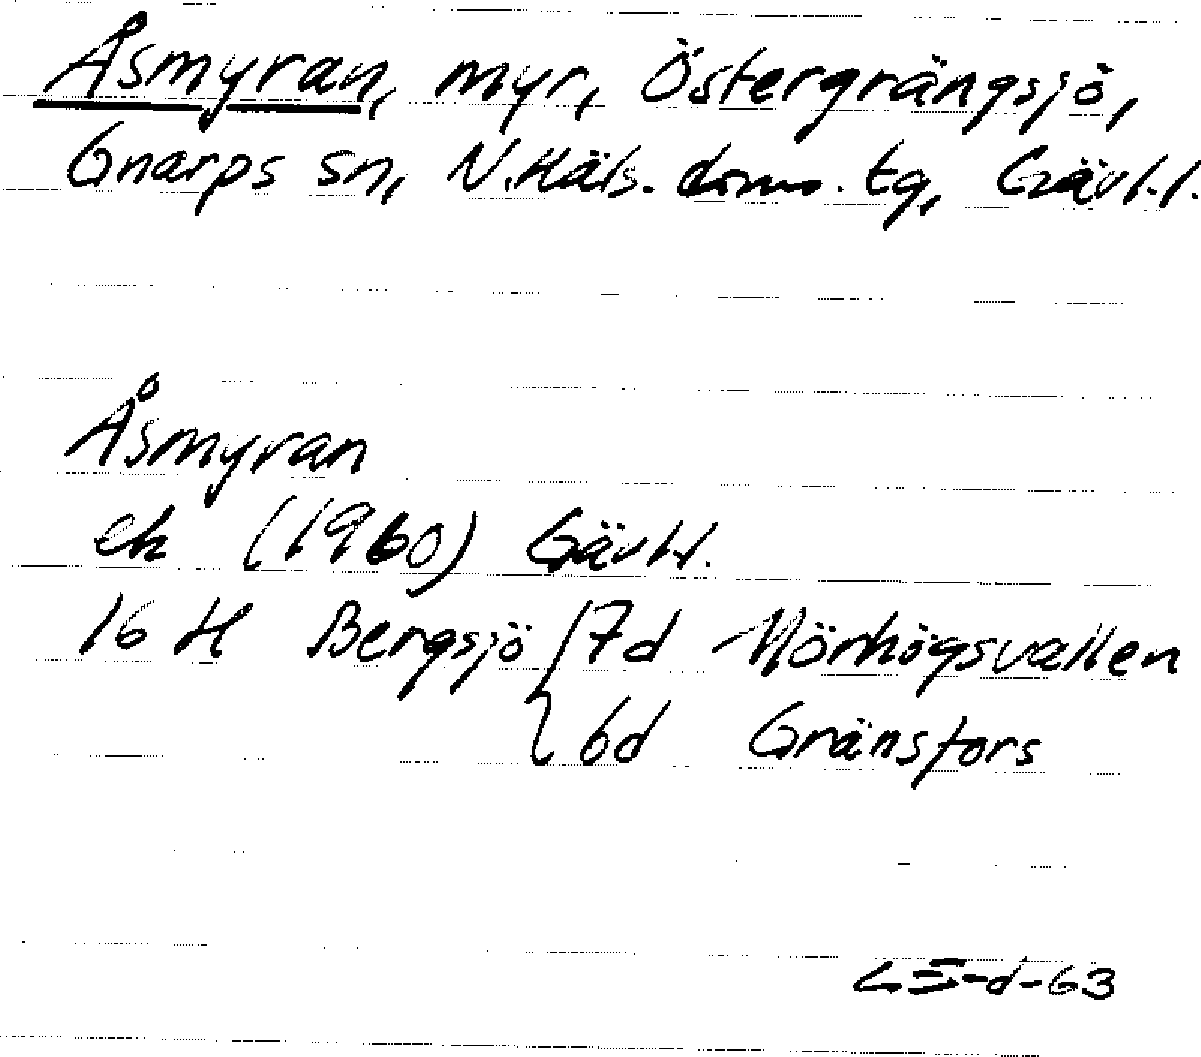 Åsmyran, myr, Östergrängsjö,
Gnarps sn, N.Häls. doms. tg, Gävl.l.
Åsmyran
ek (1960) Gävl.l.
16 H Bergsjö 7d Mörhögsvallen
6d Gränsfors
d-63